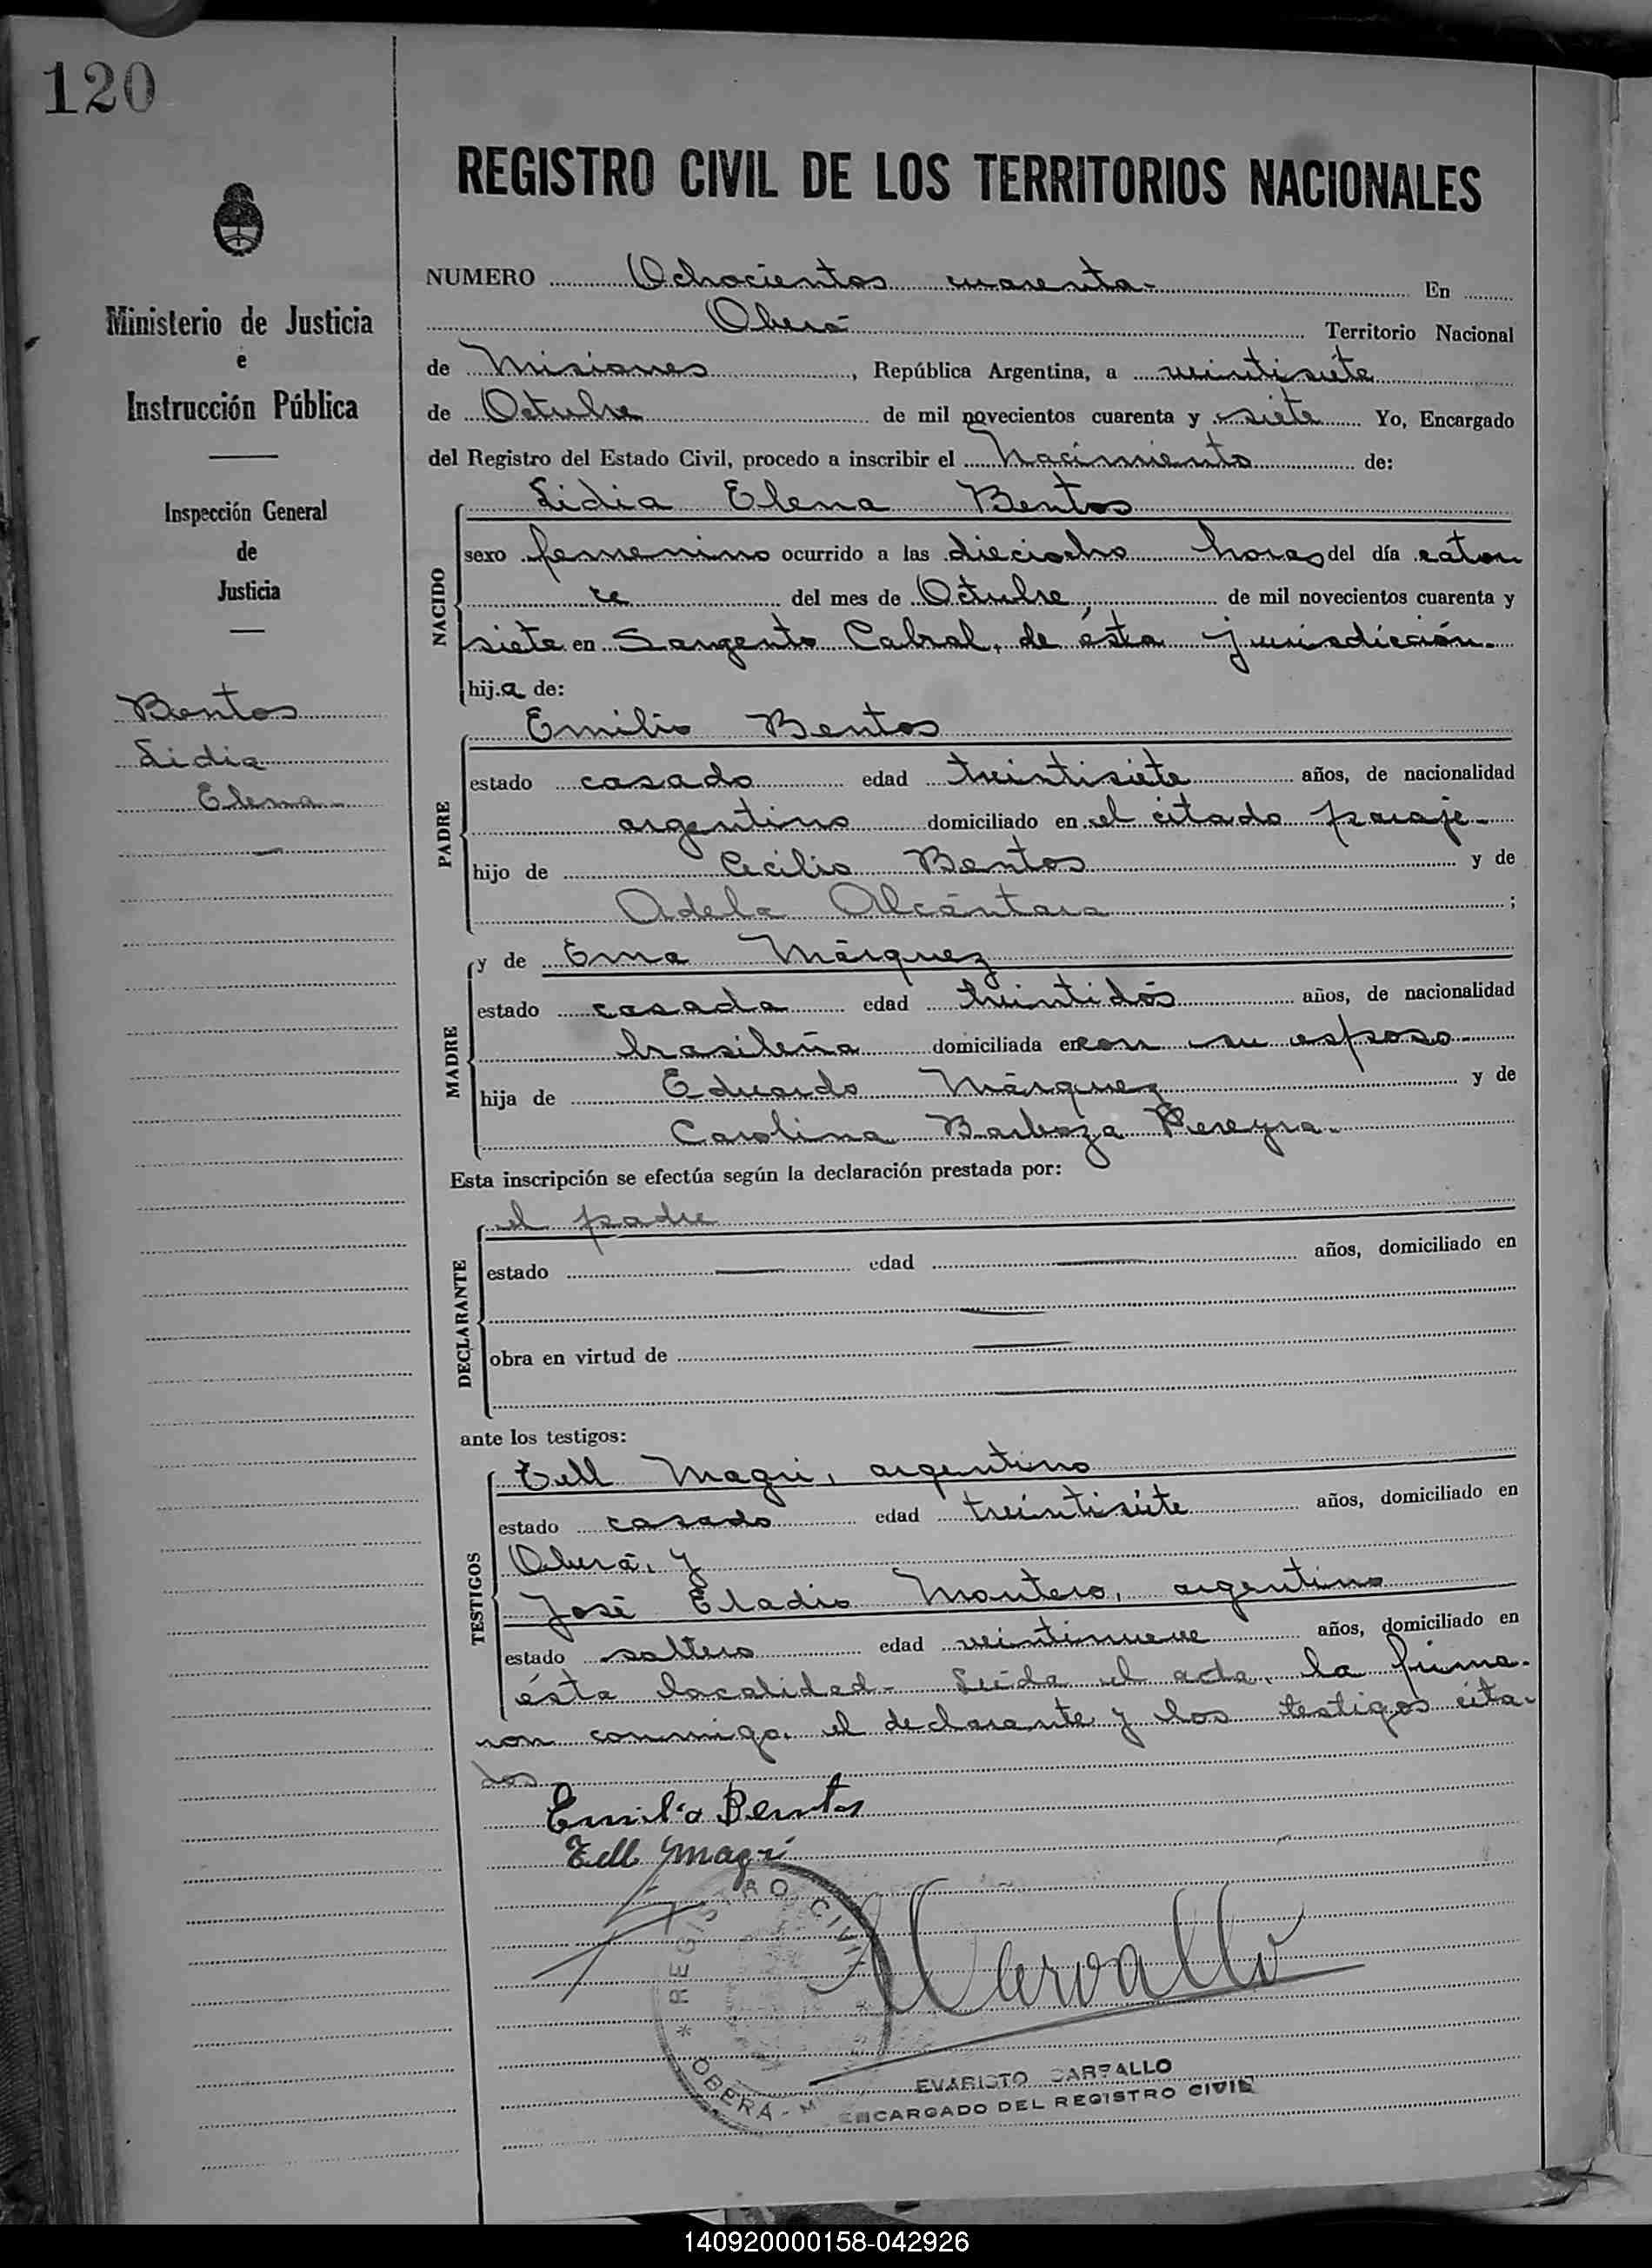 120
REGISTRO CIVIL DE LOS TERRITORIOS NACIONALES
Ministerio de Justicia
e
Instrucción Pública
Inspección General
de
Justicia
Bentos
Lidia
Elena
NUMERO Ochocientos cuarenta.- En
Oberá Territorio Nacional
de Misiones, República Argentina, a veintisiete
de Octubre de mil novecientos cuarenta y siete Yo, Encargado
del Registro del Estado Civil, procedo a inscribir el Nacimiento de:
NACIDO
Lidia Elena Bentos
sexo femenino ocurrido a las dieciocho horas del día cator
ce del mes de Octubre, de mil novecientos cuarenta y
siete en Sargento Cabral, de ésta jurisdicción.
hij.a de:
PADRE
Emilio Bentos
estado casado edad treintisiete años, de nacionalidad
argentino domiciliado en el citado paraje-
hijo de Cecilio Bentos y de
Adela Alcántara ;
MADRE
y de Ema Márquez
estado casada edad treintidós años, de nacionalidad
brasileña domiciliada en con su esposo
hija de Eduardo Márquez y de
Carolina Barboza Pereyra.
Esta inscripción se efectúa según la declaración prestada por:
DECLARANTE
el padre
estado edad años, domiciliado en
obra en virtud de
ante los testigos:
TESTIGOS
Tell Magri, argentino
estado casado edad treintisiete años, domiciliado en
Oberá, y
José Eladio Montero, argentino
estado soltero edad veintinueve años, domiciliado en
ésta localidad- Leída el acta, la firma-
ron conmigo, el declarante y los testigos cita-
dos
Emilio Bentos
Tell Magri
Carvallo
REGISTRO CIVIL
* OBERÁ - M
EVARISTO CARVALLO
ENCARGADO DEL REGISTRO CIVIL
140920000158-042926